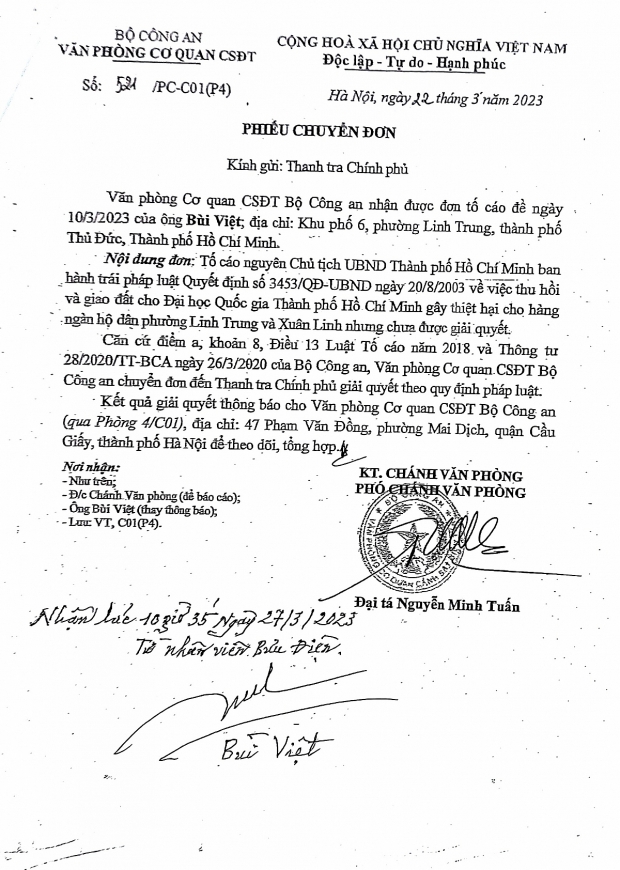 BỘ CÔNG AN
VĂN PHÒNG CƠ QUAN CSĐT
Số: 521 /PC-C01(P4)
CỘNG HOÀ XÃ HỘI CHỦ NGHĨA VIỆT NAM
Độc lập - Tự do - Hạnh phúc
Hà Nội, ngày 22 tháng 3 năm 2023
PHIẾU CHUYỂN ĐƠN
Kính gửi: Thanh tra Chính phủ
Văn phòng Cơ quan CSĐT Bộ Công an nhận được đơn tố cáo đề ngày
10/3/2023 của ông Bùi Việt; địa chỉ: Khu phố 6, phường Linh Trung, thành phố
Thủ Đức, Thành phố Hồ Chí Minh.
Nội dung đơn: Tố cáo nguyên Chủ tịch UBND Thành phố Hồ Chí Minh ban
hành trái pháp luật Quyết định số 3453/QĐ-UBND ngày 20/8/2003 về việc thu hồi
và giao đất cho Đại học Quốc gia Thành phố Hồ Chí Minh gây thiệt hại cho hàng
ngàn hộ dân phường Linh Trung và Xuân Linh nhưng chưa được giải quyết.
Căn cứ điểm a, khoản 8, Điều 13 Luật Tố cáo năm 2018 và Thông tư
28/2020/TT-BCA ngày 26/3/2020 của Bộ Công an, Văn phòng Cơ quan CSĐT Bộ
Công an chuyển đơn đến Thanh tra Chính phủ giải quyết theo quy định pháp luật.
Kết quả giải quyết thông báo cho Văn phòng Cơ quan CSĐT Bộ Công an
(qua Phòng 4/C01), địa chỉ: 47 Phạm Văn Đồng, phường Mai Dịch, quận Cầu
Giấy, thành phố Hà Nội để theo dõi, tổng hợp.
Nơi nhận:
- Như trên;
- Đ/c Chánh Văn phòng (để báo cáo);
- Ông Bùi Việt (thay thông báo);
- Lưu: VT, C01(P4).
KT. CHÁNH VĂN PHÒNG
PHÓ CHÁNH VĂN PHÒNG
BỘ CÔNG AN
VĂN PHÒNG CƠ QUAN CẢNH SÁT
Đại tá Nguyễn Minh Tuấn
Nhận lúc 10 giờ 35 Ngày 27/3/2023
Từ nhân viên Bưu Điện.
Bùi Việt